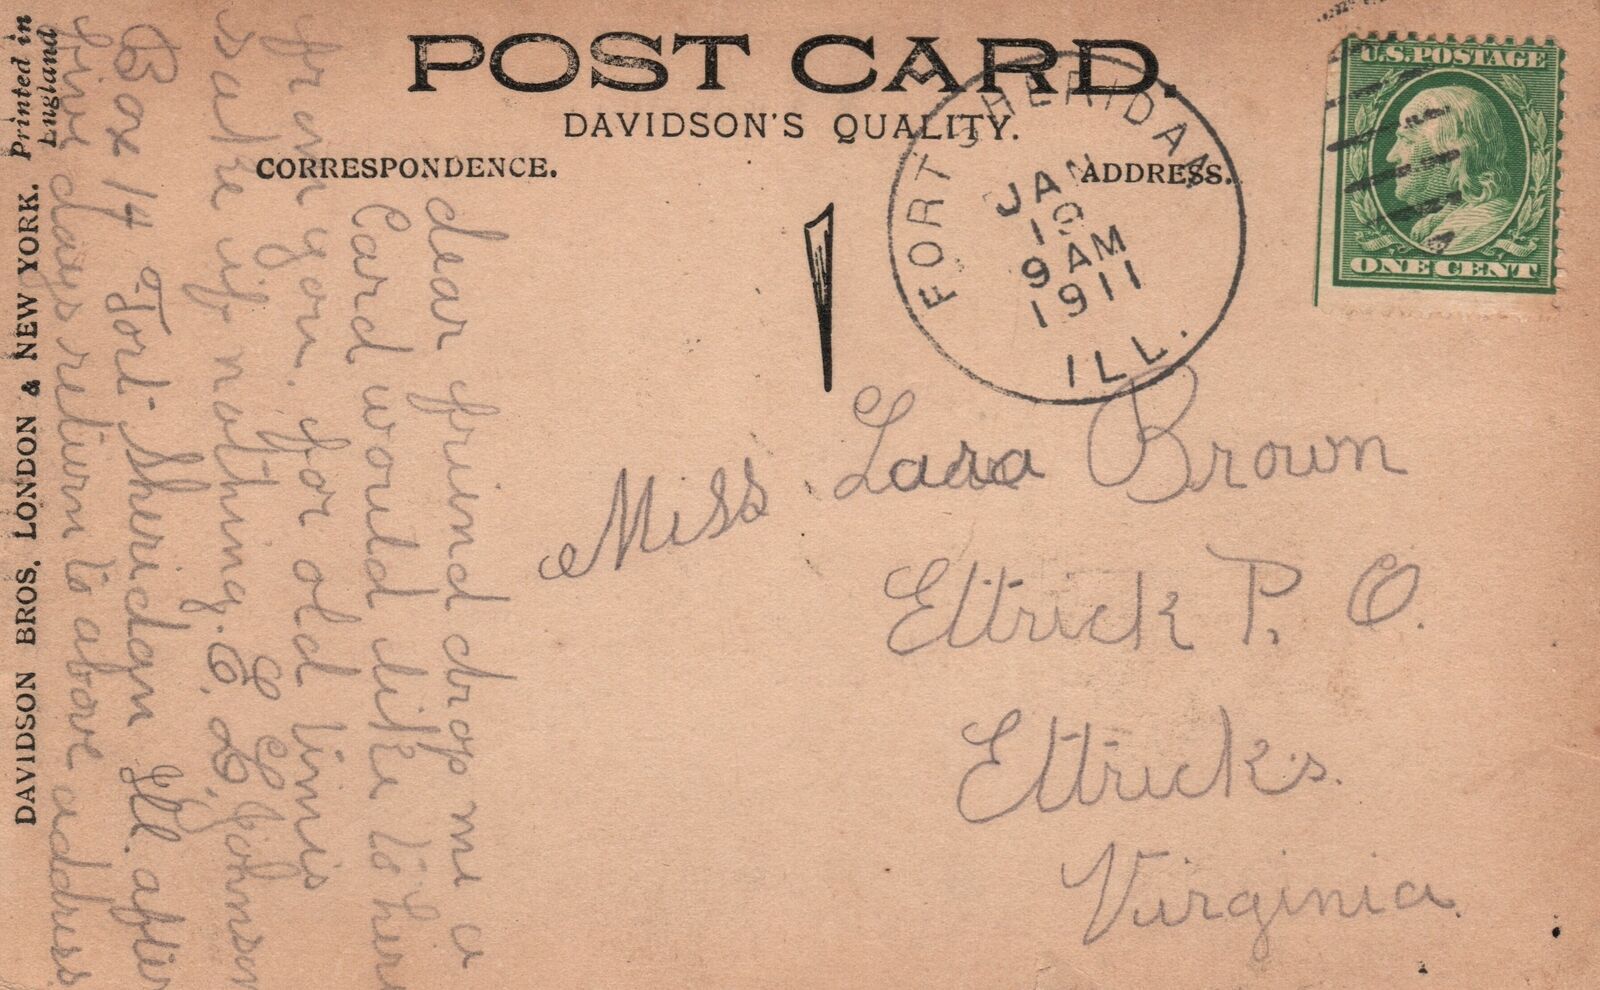 POST CARD.
DAVIDSON'S QUALITY.
CORRESPONDENCE.
ADDRESS.
FORT SHERIDAN
JAN
9 AM
1911
ILL.
U.S. POSTAGE
ONE CENT
Miss Lara Brown
Ettrick P. O.
Ettricks.
Virginia.
dear frind drop me a
Card would like to here
from you. for old times
sake if nothing. C. L. Johnson
Box 17 Fort Sheridan Ill. after
five days return to above address
DAVIDSON BROS. LONDON & NEW YORK. Printed in
England